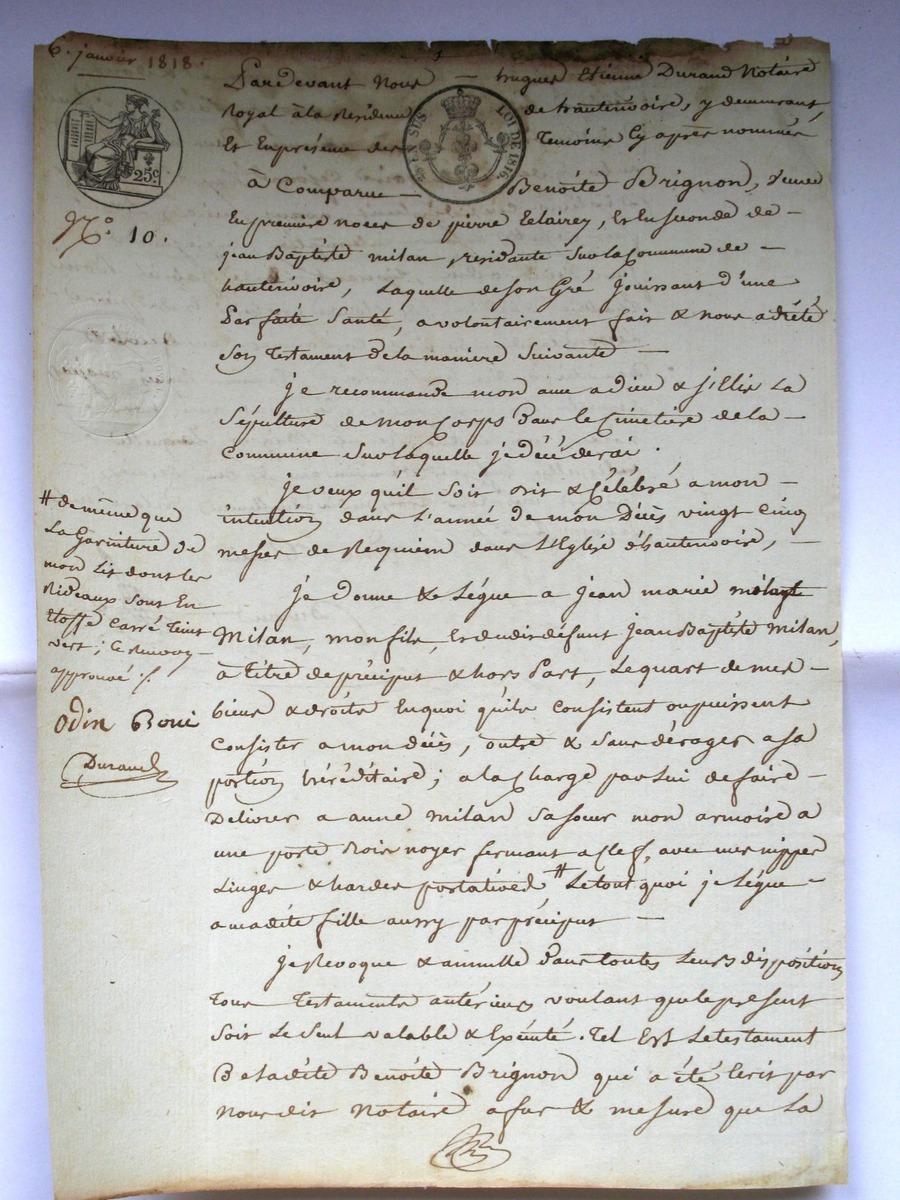 6. janvier 1818.
Pardevant Nous — hugues Etienne Durand Notaire
Royal à la Residence de hautenvoire, y demeurant
Et En présence des Temoins Cy après nommés
25c.
EN SUS
LOI DE 1816.
à Comparue — Benoîte Brignon, veuve
No. 10.
En première noces de pierre Teteirey, Et En seconde de —
jean Baptiste milan, residante Sur la Commune de —
hautenvoire, Laquelle de son Gré Jouissant d'une
Parfaite Santé, a volontairement fait & nous a dicté
Son Testament de la manière Suivante —
je recommande mon ame a dieu & j'Elis La
Sépulture de mon Corps Dans le Cimetière de la —
Commune Sur laquelle je décéderai.
je veux qu'il Soit dit & Célébré a mon
intention dans L'année de mon Décès vingt Cinq
messes de Requiem dans L'Eglise d'hautenvoire, —
je donne & Légue a jean marie
Milan, mon fils, Et dudit défunt jean Baptiste milan,
à titre de préciput & hors Part, Le quart de mes —
biens & droits En quoi qu'ils Consistent ou puissent
Consister a mon décès, outre & Sans déroger a sa
portion héréditaire; a la Charge par Lui de faire —
Délivrer a anne milan Sa soeur mon armoire a
une porte Bois noyer fermant a Clef, avec mes nippes
Linges & hardes portatives # Le tout quoi je Légue —
a madite fille aussy par préciput —
# de même que
La Garniture de
mon Lit dont les
Rideaux Sont En
Etoffe Carré teint
vert; Ce Renvoy
approuvé ./.
Odin Boui
Durand
je Revoque & annulle Dans toutes Leurs dispositions
Tous Testaments antérieurs voulant que le present
Soit Le Seul valable & Exécuté. Tel Est Le testament
De Ladite Benoîte Brignon qui a été Ecrit par
Nous dit Notaire a fur & mesure que La